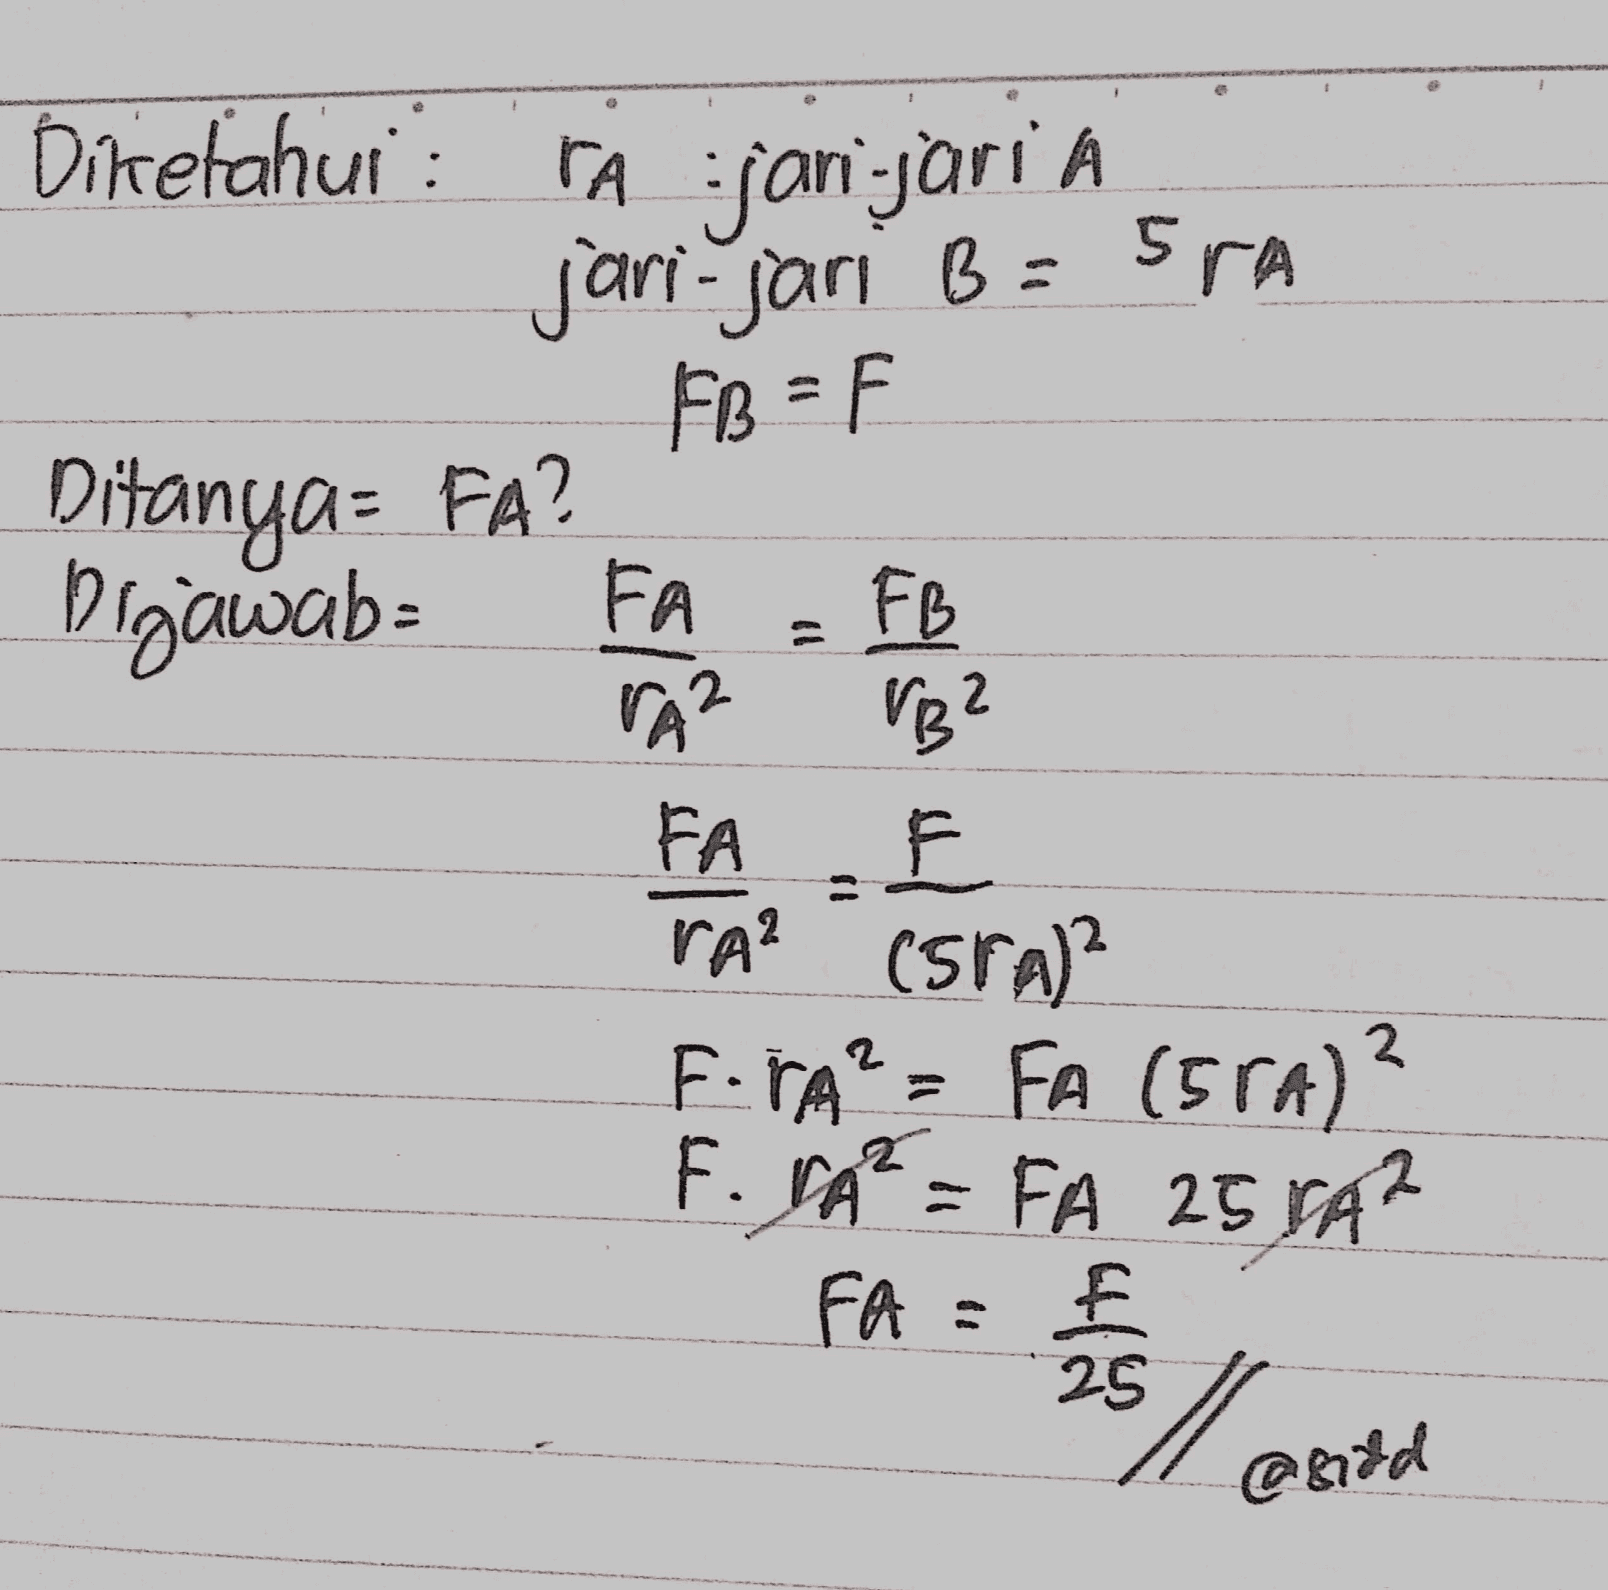 Diketahui : rA : jari-jari A
jari-jari B = 5 rA
FB = F
Ditanya= FA?
Dijawab= FA/rA² = FB/rB²
FA/rA² = F/(5rA)²
F. rA² = FA (5rA)²
F. rA² = FA 25 rA²
FA = F/25 //